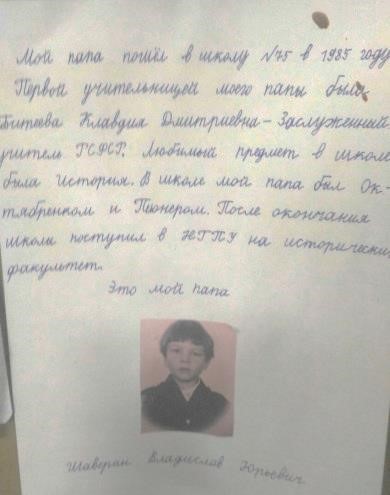 Мой папа пошёл в школу №75 в 1985 году
Первой учительницей моего папы была
Битеева Клавдия Дмитриевна - Заслуженный
учитель РСФСР. Любимый предмет в школе
была История. В школе мой папа был Ок-
тябренком и Пионером. После окончания
школы поступил в НГПУ на исторический
факультет.
Это мой папа
Шаверан Владислав Юрьевич